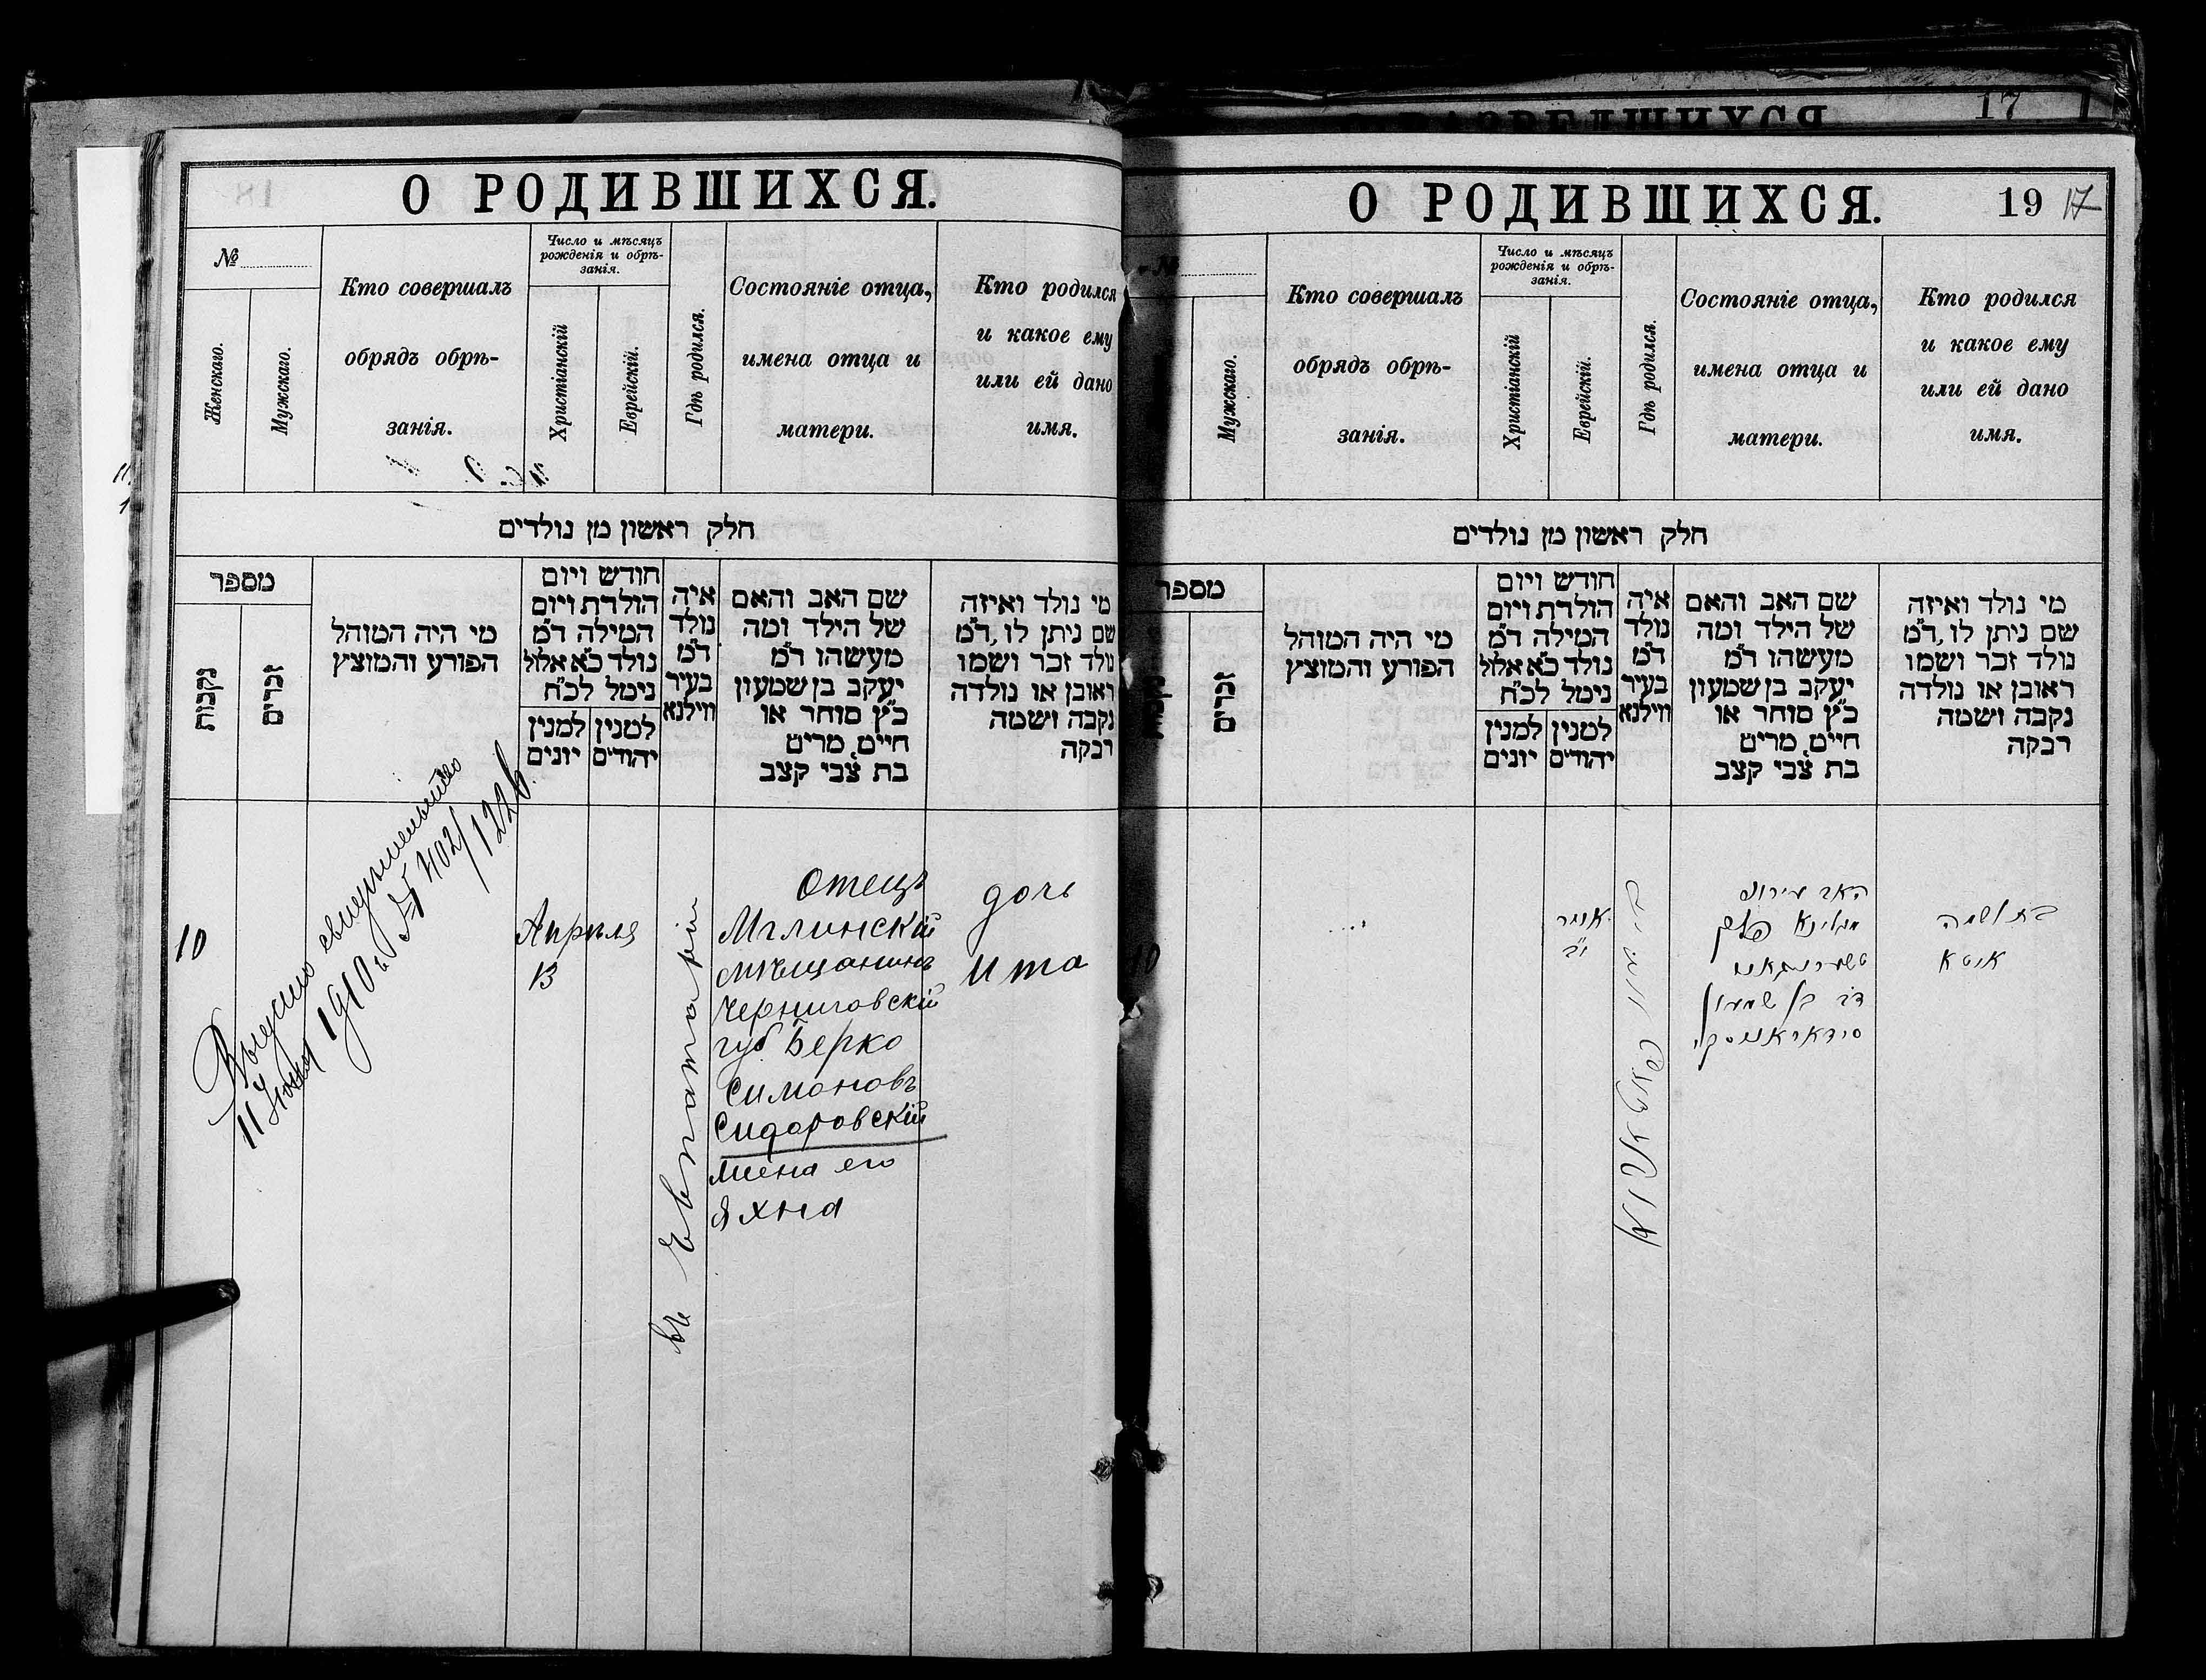 17
О РОДИВШИХСЯ.
№
Женскаго.
Мужскаго.
Кто совершалъ
обрядъ обрѣ-
занія.
Число и мѣсяцъ
рожденія и обрѣ-
занія.
Христіанскій
Еврейскій.
Гдѣ родился.
Состояніе отца,
имена отца и
матери.
Кто родился
и какое ему
или ей дано
имя.
חלק ראשון מן נולדים
מספר
נקבות
זכרים
מי היה המוהל
הפורע והמוצץ
חודש ויום
הולדת ויום
המילה ד"מ
נולד כ"א אלול
נימל לכ"ח
למנין
יהודים
למנין
יונים
איה
נולד
ד"מ
בעיר
ווילנא
שם האב והאם
של הילד ומה
מעשהו ד"מ
יעקב בן שמעון
כ"ץ סוחר או
חיים, מרים
בת צבי קצב
מי נולד ואיזה
שם ניתן לו, ד"מ
נולד זכר ושמו
ראובן או נולדה
נקבה ושמה
רבקה
10
Выдано свидетельство
11 1910 г. № 402/1226.
Апрѣля
13
въ Евпаторіи
Отецъ
Мглинскій
мѣщанинъ
Черниговскій
губ. Берко
Симоновъ
Сидаровскій
жена его
Яхна
дочь
Ита
О РОДИВШИХСЯ.
19 17
№
Мужскаго.
Кто совершалъ
обрядъ обрѣ-
занія.
Число и мѣсяцъ
рожденія и обрѣ-
занія.
Христіанскій
Еврейскій.
Гдѣ родился.
Состояніе отца,
имена отца и
матери.
Кто родился
и какое ему
или ей дано
имя.
חלק ראשון מן נולדים
מספר
זכרים
מי היה המוהל
הפורע והמוצץ
חודש ויום
הולדת ויום
המילה ד"מ
נולד כ"א אלול
נימל לכ"ח
למנין
יהודים
למנין
יונים
איה
נולד
ד"מ
בעיר
ווילנא
שם האב והאם
של הילד ומה
מעשהו ד"מ
יעקב בן שמעון
כ"ץ סוחר או
חיים, מרים
בת צבי קצב
מי נולד ואיזה
שם ניתן לו, ד"מ
נולד זכר ושמו
ראובן או נולדה
נקבה ושמה
רבקה
10
האב עירוני
מגלינא פלך
דב בן שמעון
בת ושמה
איטא